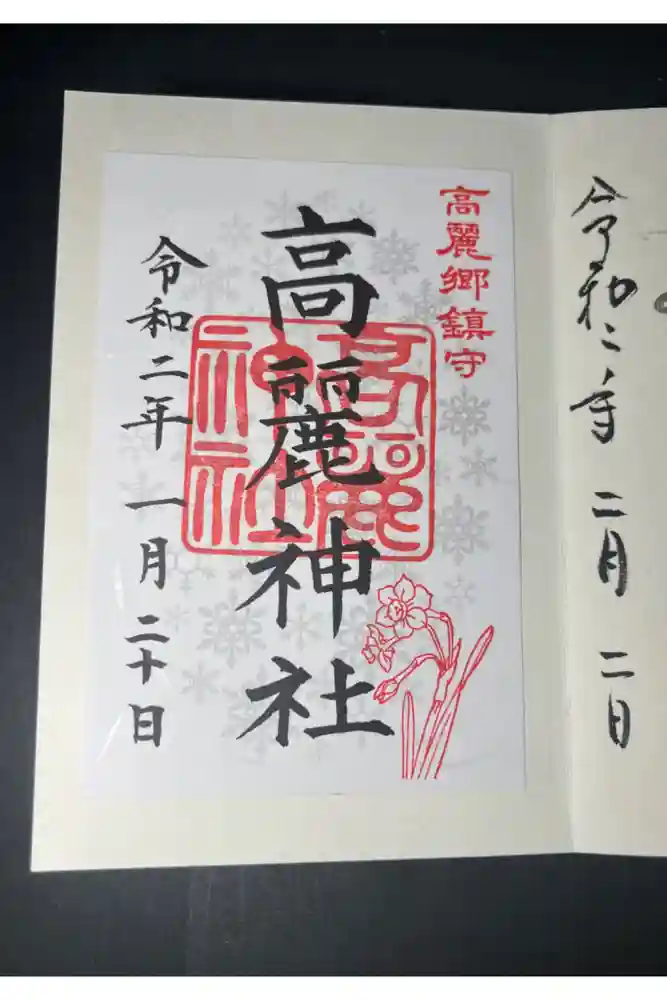 令和二年 二月 二日
高麗郷鎮守
高麗神社
高麗
神社
令和二年 一月 二十日